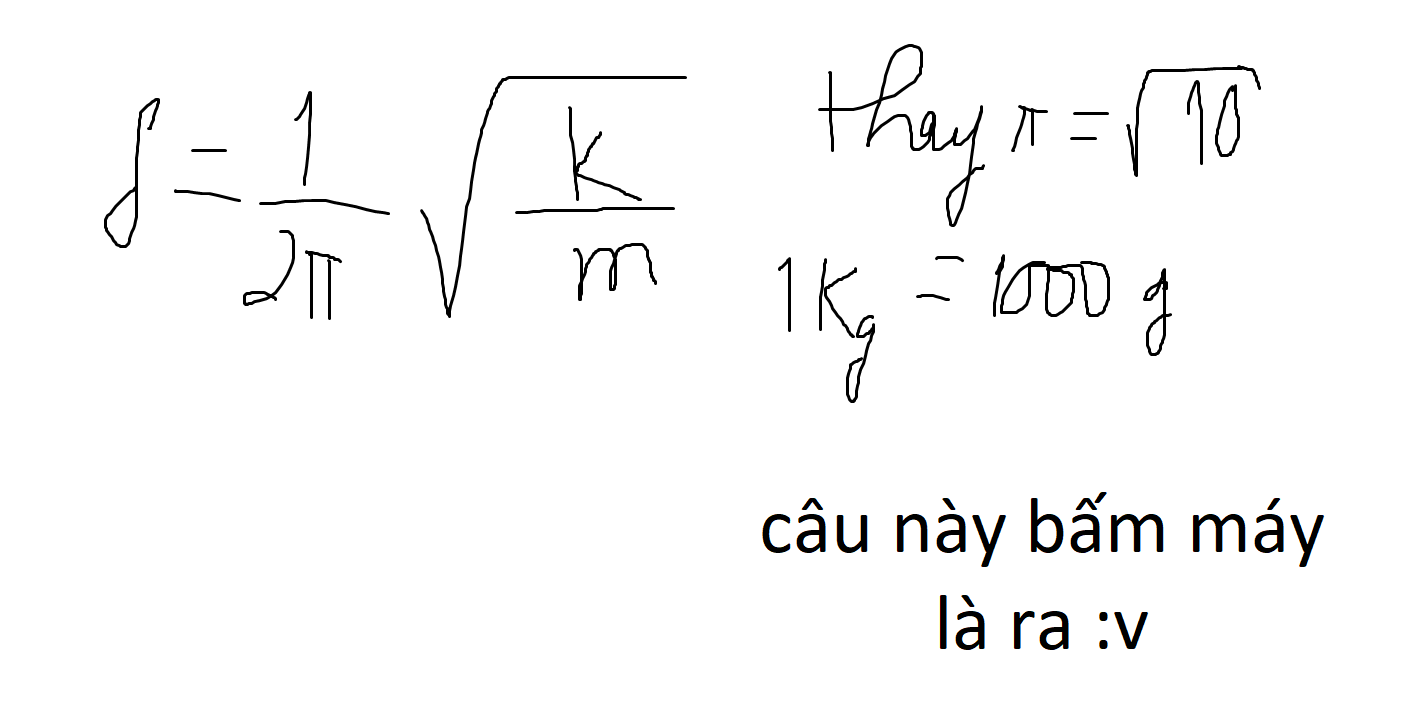 f = 1/2π √k/m
thay π = √10
1Kg = 1000 g
câu này bấm máy
là ra :v